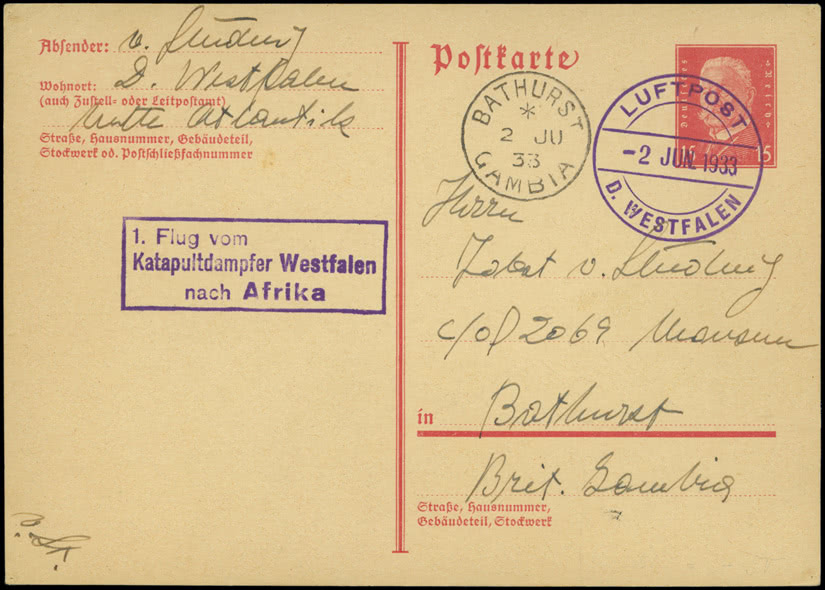 Absender: v. Studnitz
Wohnort: D. Westfalen
(auch Zustell- oder Leitpostamt)
Mitte Atlantik
Straße, Hausnummer, Gebäudeteil,
Stockwerk od. Postschließfachnummer
Postkarte
Deutsches Reich
15 15
BATHURST
2 JU
33
GAMBIA
LUFTPOST
-2 JUN. 1933
D. WESTFALEN
1. Flug vom
Katapultdampfer Westfalen
nach Afrika
Herrn
Jobst v. Studnitz
c/o 2069
in Bathurst
Brit. Gambia
Straße, Hausnummer,
Gebäudeteil, Stockwerk
v. St.